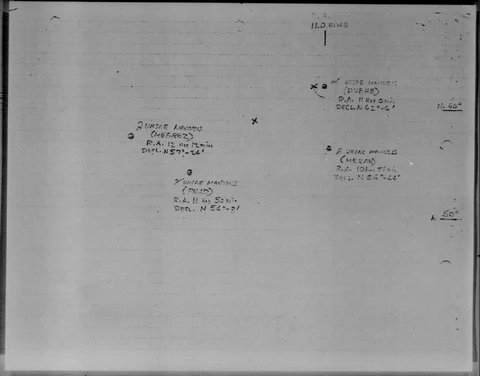 R.A.
11.0 HOURS
α URSAE MAJORIS
(DUBHE)
R.A. 11 HRS
DECL. N 62°
N. 60°
δ URSAE MAJORIS
(MEGREZ)
R.A. 12 HRS 12 min
DECL. N 57°-24'
β URSAE MAJORIS
(MERAK)
R.A. 10h
DECL. N 56°-44'
γ URSAE MAJORIS
(PHAD)
R.A. 11 HRS 50
DECL. N 54°
N 50°